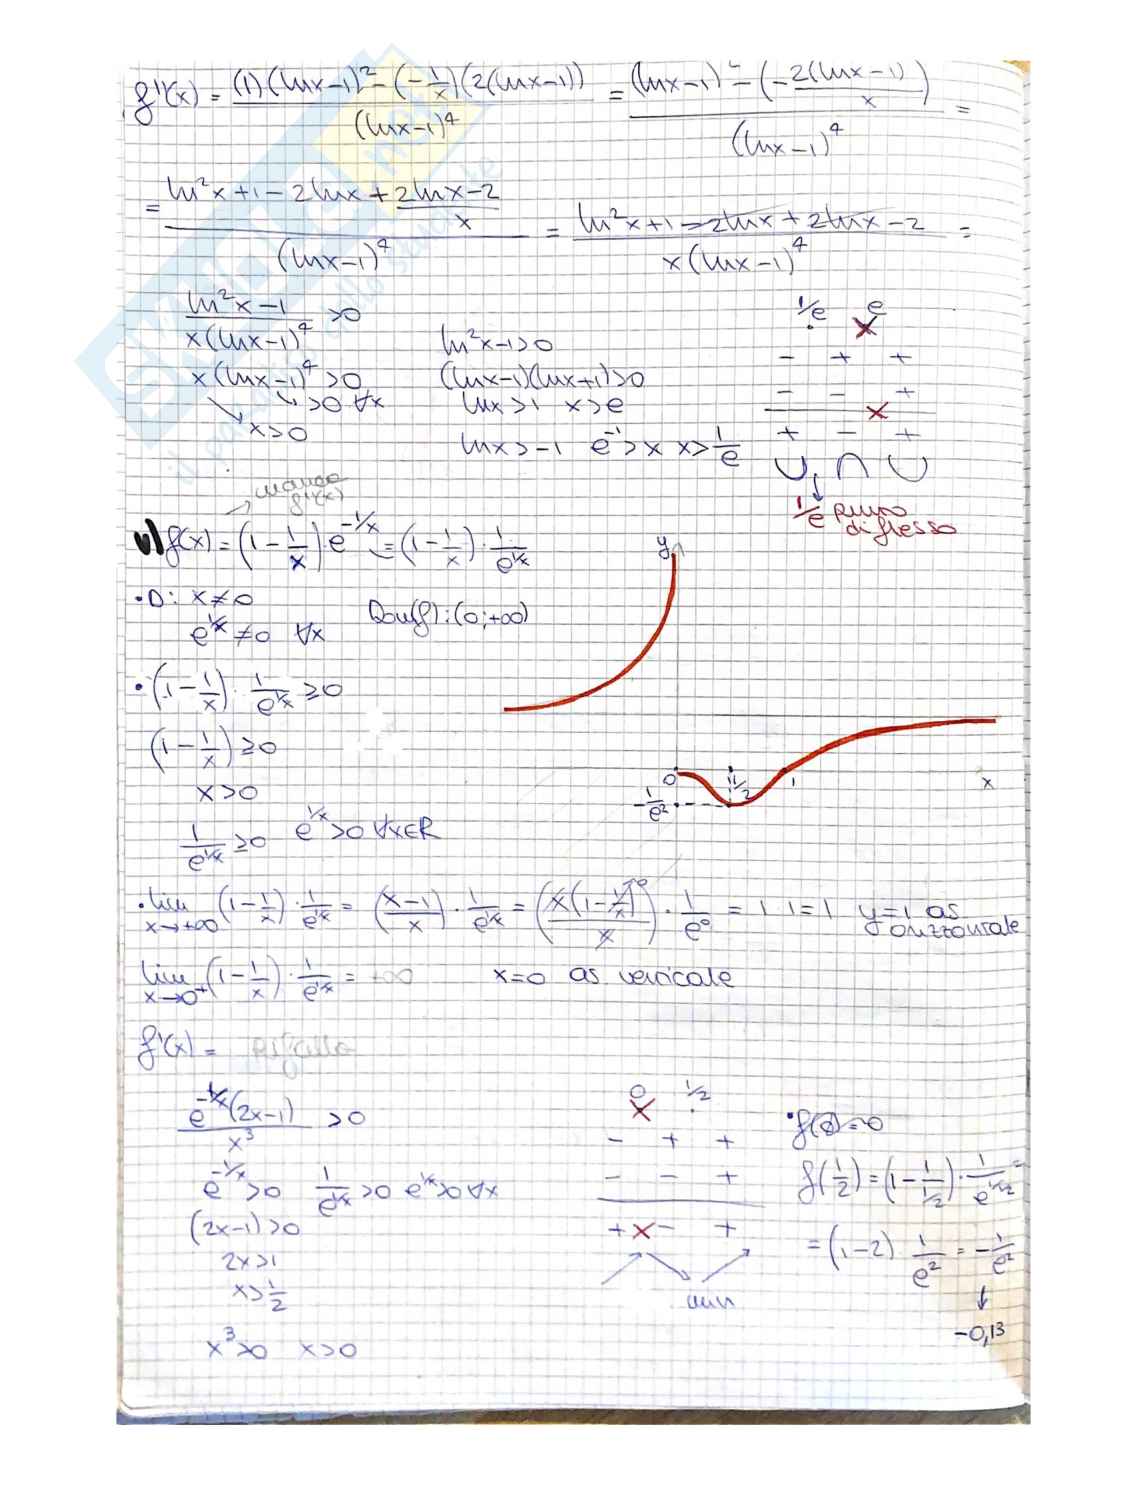 f''(x) = (1)(lnx-1)² - (-1/x)(2(lnx-1)) / (lnx-1)⁴ = (lnx-1)² - (-2(lnx-1)/x) / (lnx-1)⁴ =
= ln²x+1-2lnx+ 2lnx-2/x / (lnx-1)⁴ = ln²x+1-2lnx+2lnx-2 / x(lnx-1)⁴ =
ln²x-1 / x(lnx-1)⁴ >0
x(lnx-1)⁴>0
>0 ∀x
x>0
ln²x-1>0
(lnx-1)(lnx+1)>0
lnx>1 x>e
lnx>-1 e⁻¹>x x>1/e
1/e e
- + +
- - +
+ - +
1/e punto
di flesso
manca
f''(x)
f(x) = (1-1/x)·e^(-1/x) = (1-1/x)·1/e^(1/x)
•D: x≠0
e^(1/x)≠0 ∀x
Dom(f):(0;+∞)
•(1-1/x)·1/e^(1/x) ≥0
(1-1/x)≥0
x>0
1/e^(1/x) ≥0 e^(1/x)>0 ∀x∈R
y
0 1/2 1 x
-1/e²
•lim x→+∞ (1-1/x)·1/e^(1/x) = (x-1/x)·1/e^(1/x) = (x(1-1/x)/x)·1/e⁰ = 1·1=1 y=1 as.
orizzontale
lim x→0⁺ (1-1/x)·1/e^(1/x) = +∞ x=0 as. verticale
f'(x) =
e^(-1/x)(2x-1) / x³ >0
e^(-1/x)>0 1/e^(1/x)>0 e^(1/x)>0 ∀x
(2x-1)>0
2x>1
x>1/2
x³>0 x>0
0 1/2
- + +
- - +
+ - +
min
•f(0)=0
f(1/2) = (1-1/1/2)·1/e^(1/1/2) =
= (1-2) 1/e² = -1/e²
-0,13